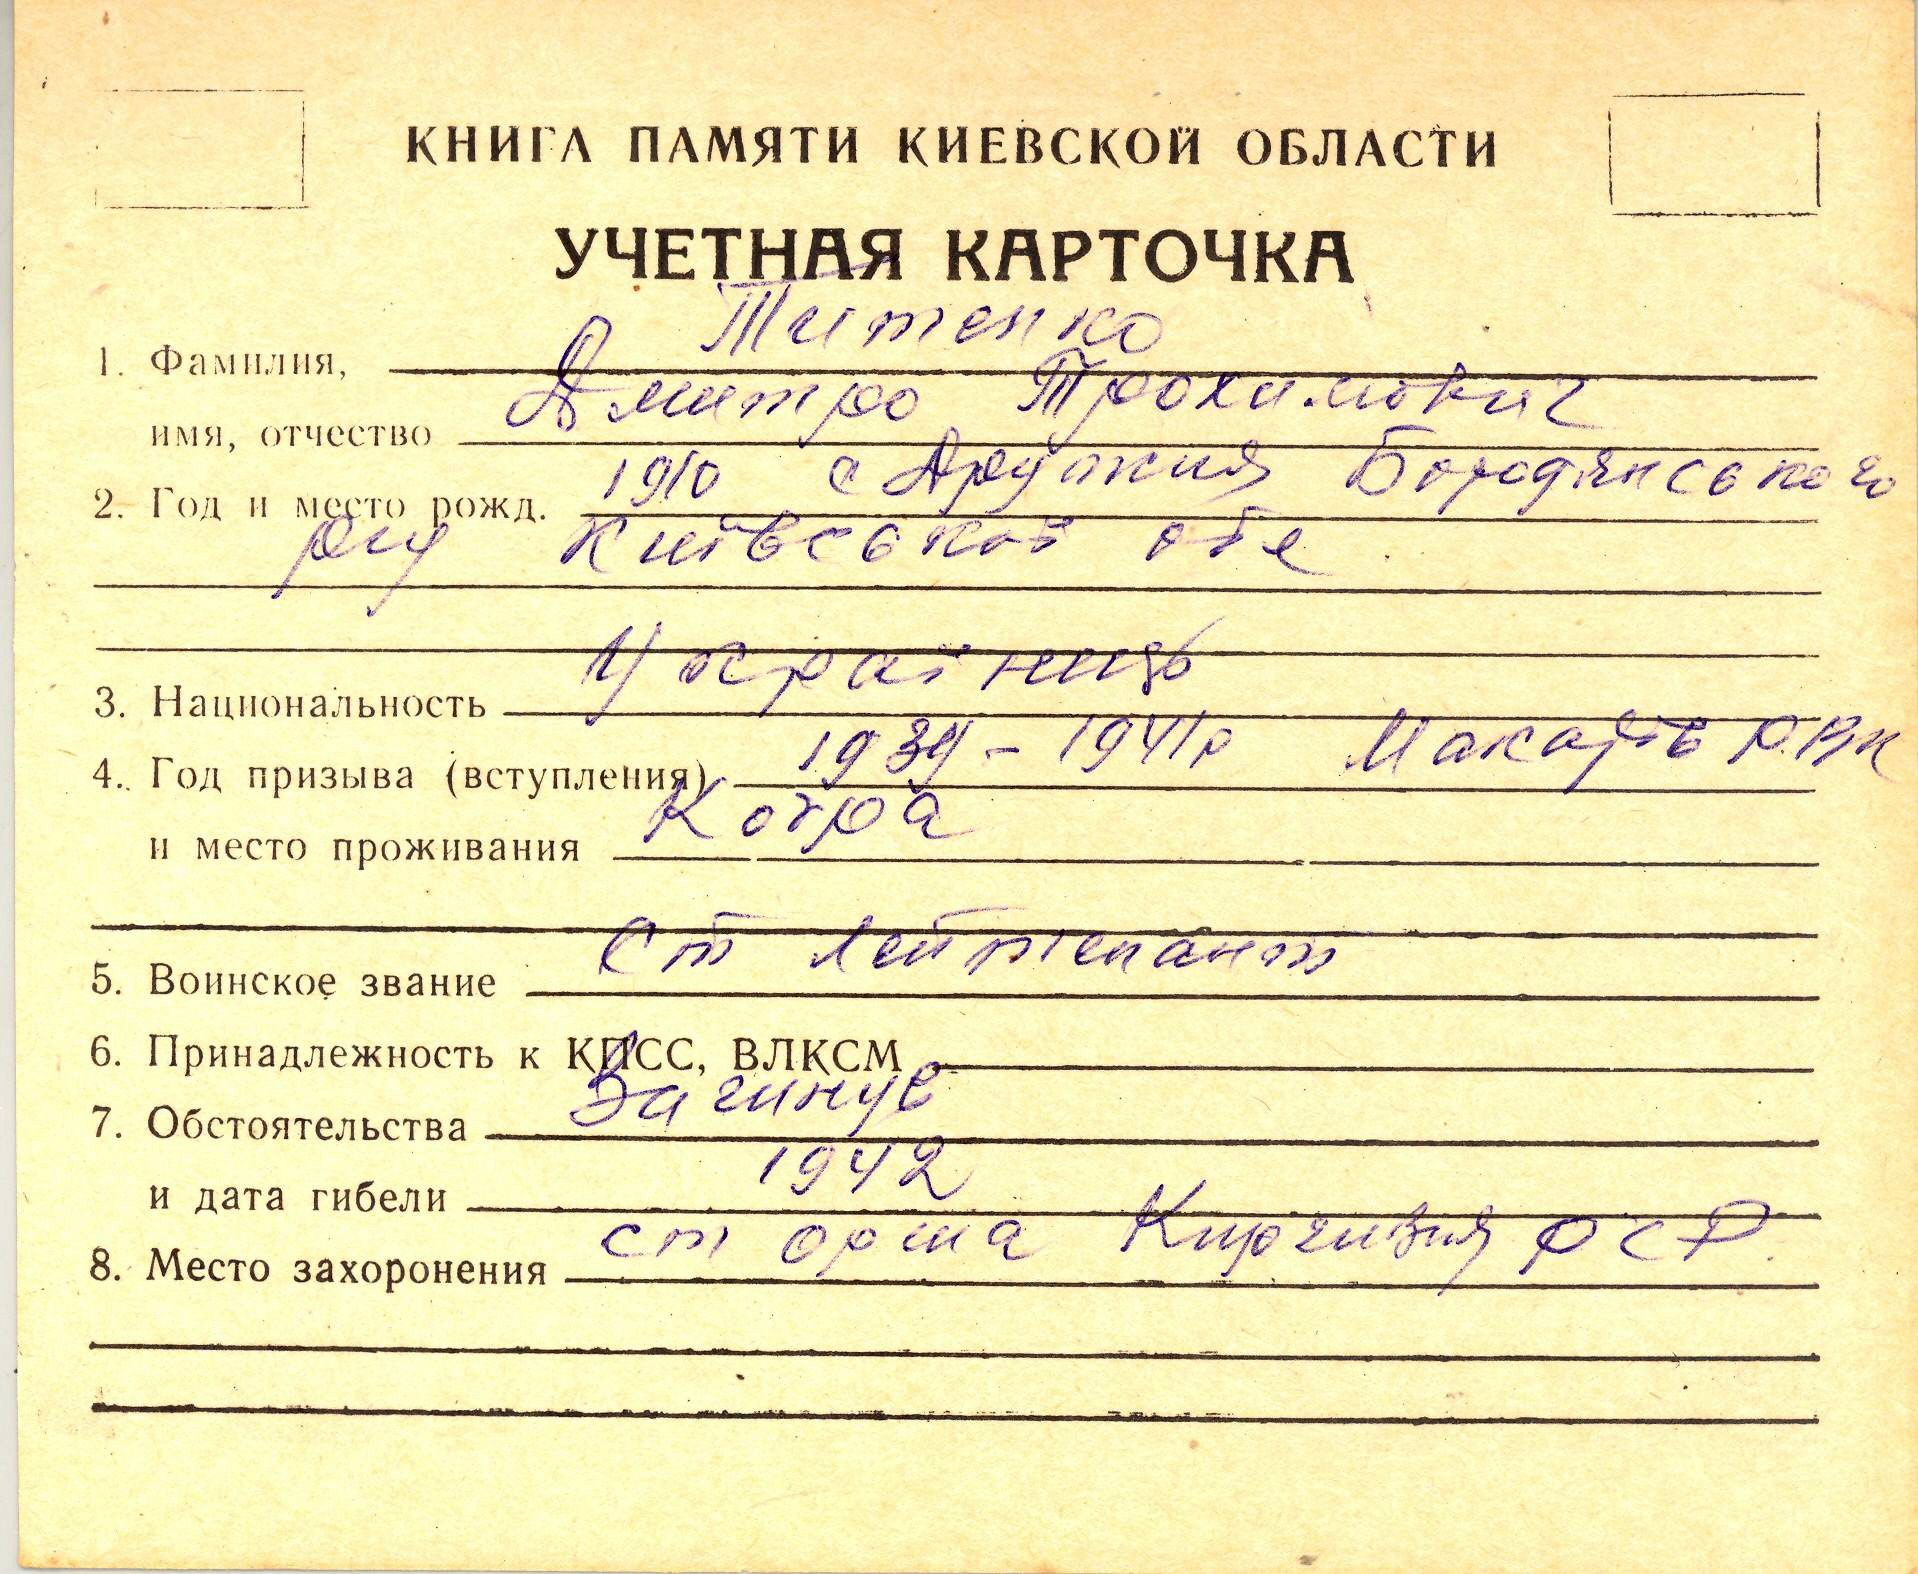 КНИГА ПАМЯТИ КИЕВСКОЙ ОБЛАСТИ
УЧЕТНАЯ КАРТОЧКА
1. Фамилия, Титенко
имя, отчество Дмитро Трохимович
2. Год и место рожд. 1910 с Дружня Бородянського
р-ну Київської обл
3. Национальность Українець
4. Год призыва (вступления) 1939 - 1941р Макарів РВК
и место проживания
5. Воинское звание Ст лейтенант
6. Принадлежность к КПСС, ВЛКСМ
7. Обстоятельства Загинув
и дата гибели 1942
8. Место захоронения ст орша Киргизія РСР